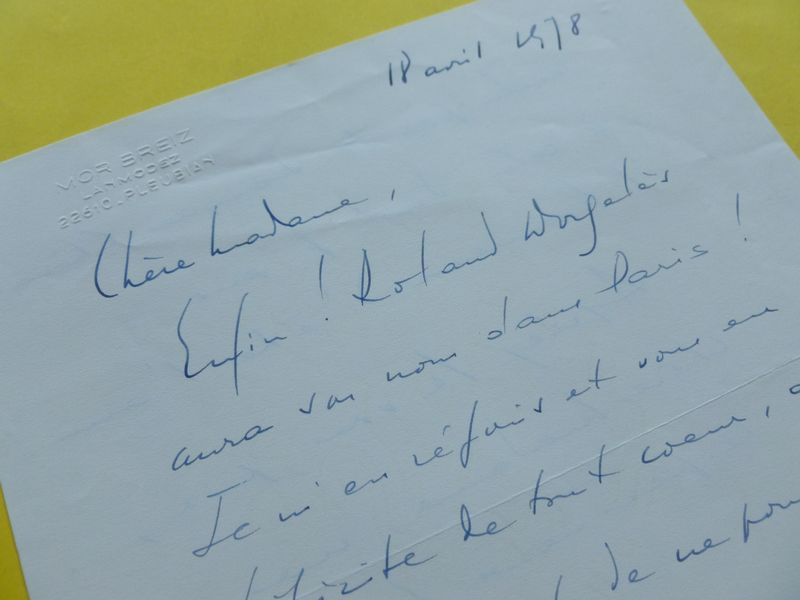 18 avril 1978
MOR BREIZ
LANMODEZ
22610 - PLEUBIAN
Chère Madame,
Enfin ! Roland Dorgelès
aura son nom dans Paris !
Je m'en réjouis et vous en
félicite de tout coeur,
de ne pou